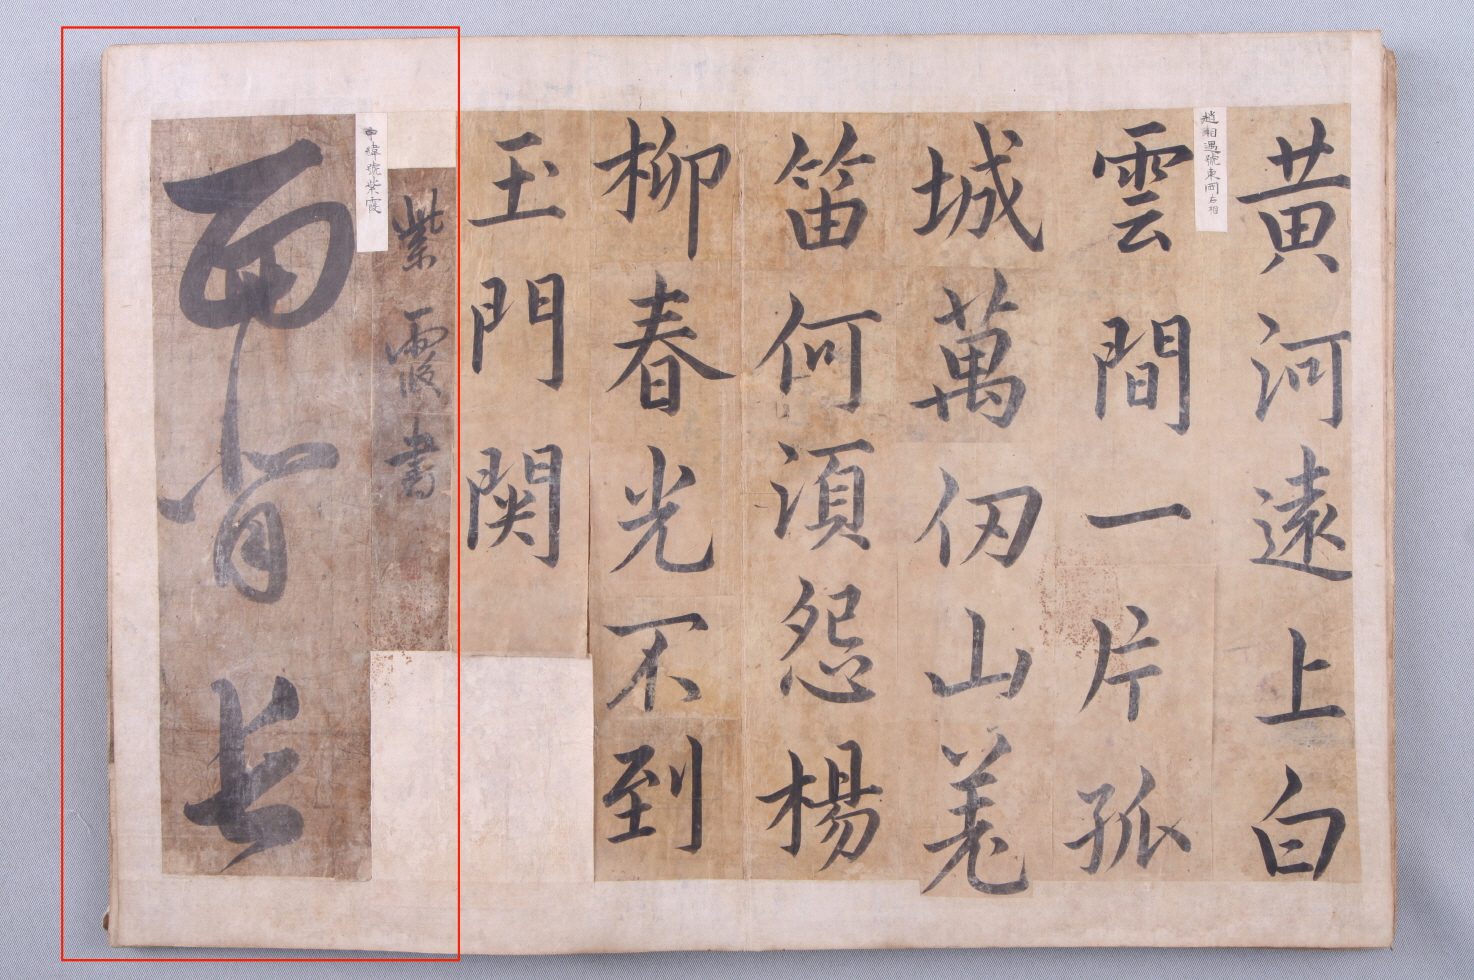 黄河遠上白
趙相遇號東岡右相
雲間一片孤
城萬仞山羗
笛何湏怨楊
柳春光不到
玉門関
紫霞書
申緯號紫霞
長